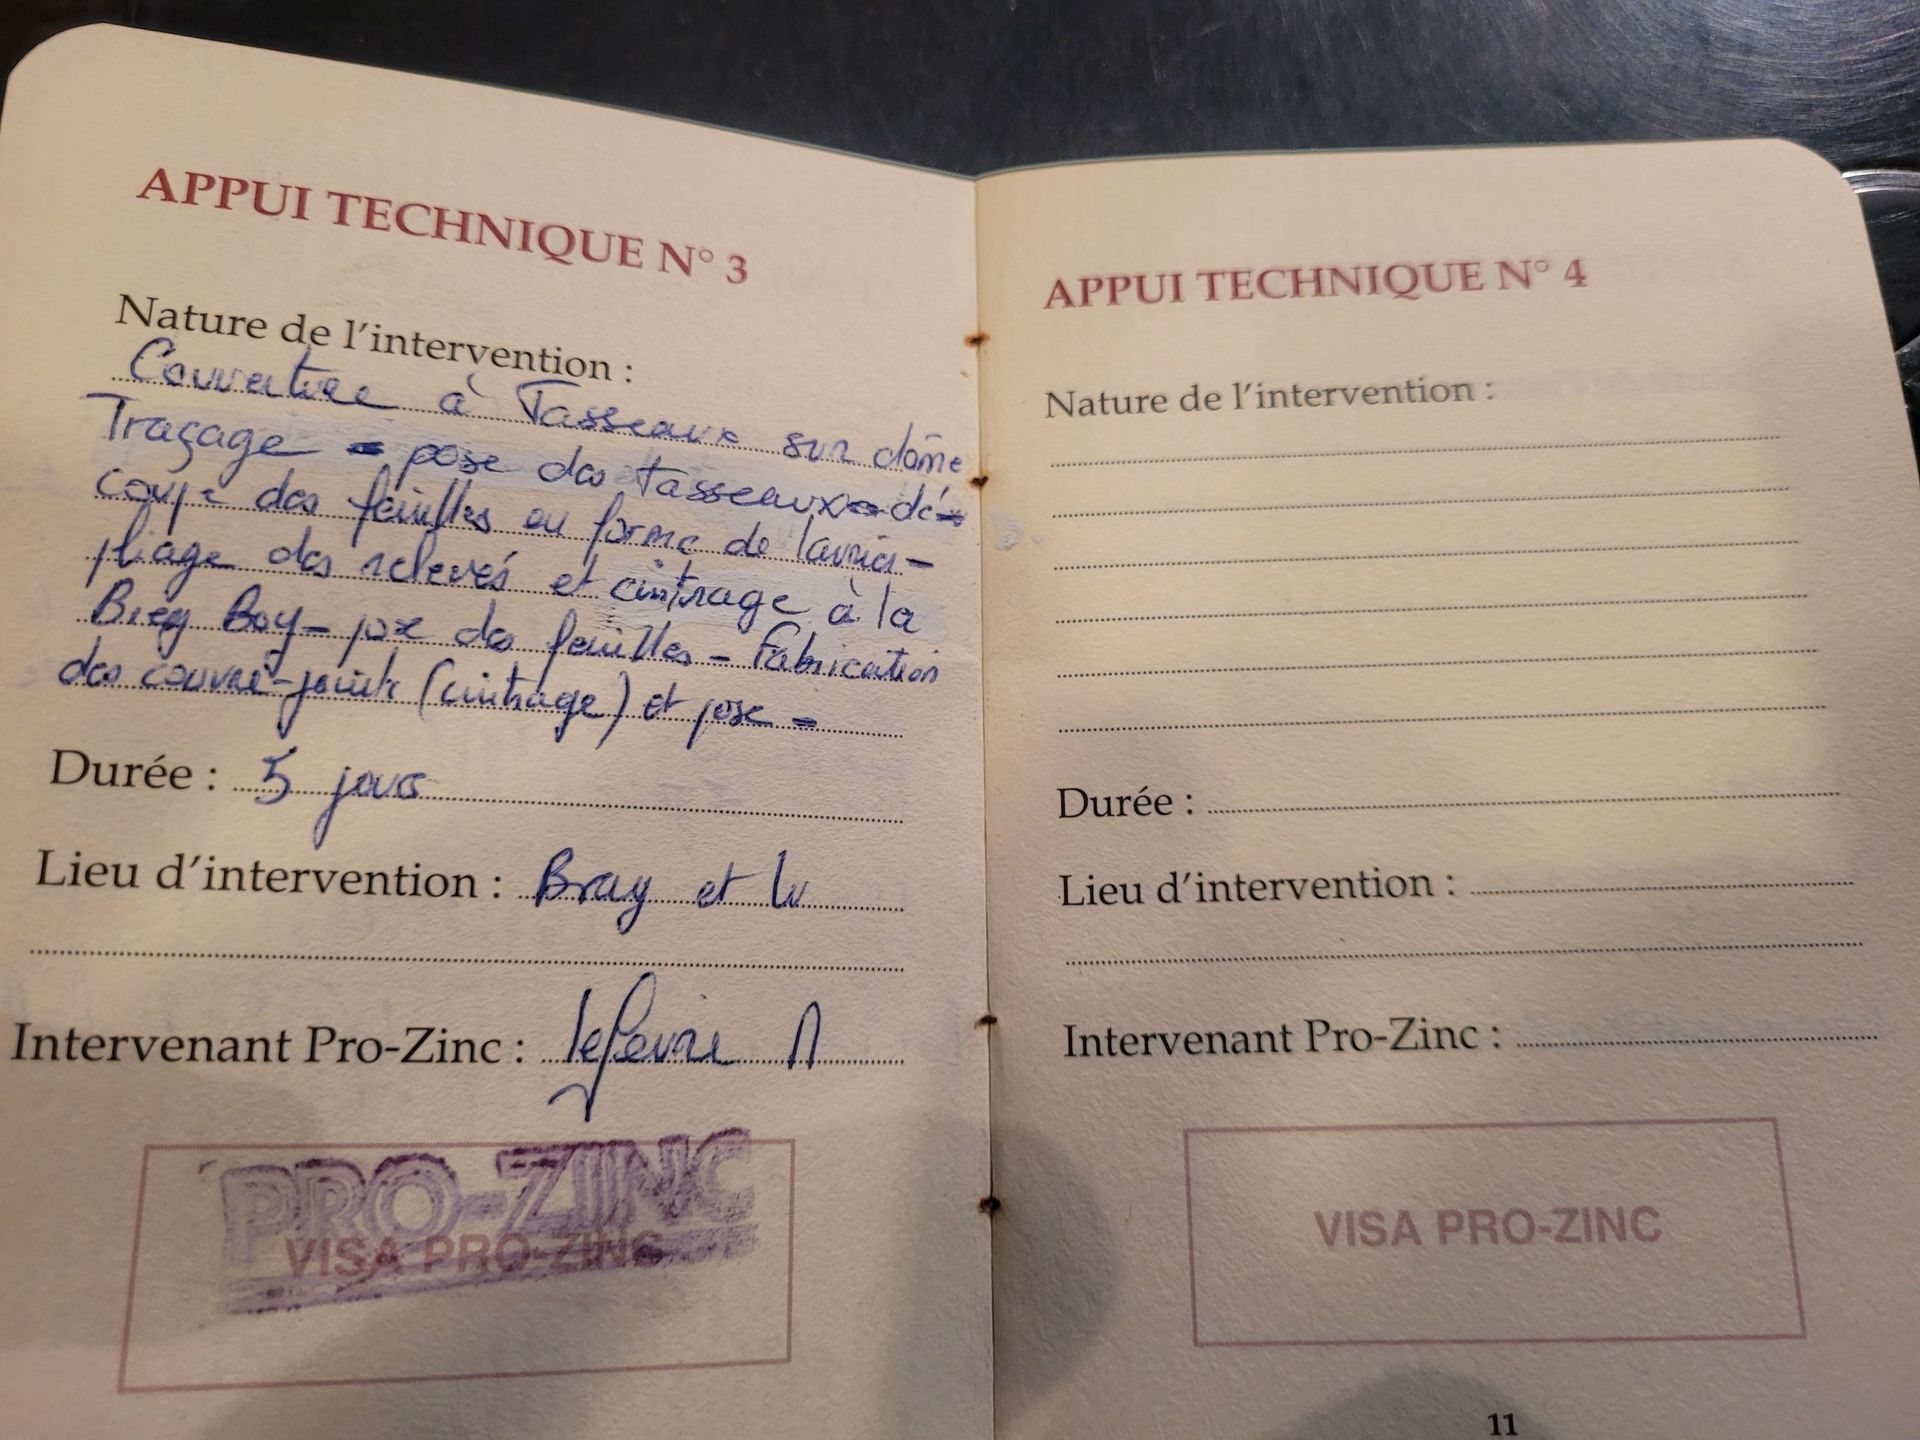 APPUI TECHNIQUE N° 3
Nature de l'intervention :
Couverture à Tasseaux sur dôme
Traçage - pose des tasseaux - dé-
coupe des feuilles en forme de
pliage des relevés et cintrage à la
Boy - pose des feuilles - Fabrication
des couvre-joints (cintrage) et pose -
Durée : 5 jours
Lieu d'intervention : Bray et lu
Intervenant Pro-Zinc : lefevre
PRO-ZINC
VISA PRO-ZINC
APPUI TECHNIQUE N° 4
Nature de l'intervention :
Durée :
Lieu d'intervention :
Intervenant Pro-Zinc :
VISA PRO-ZINC
11